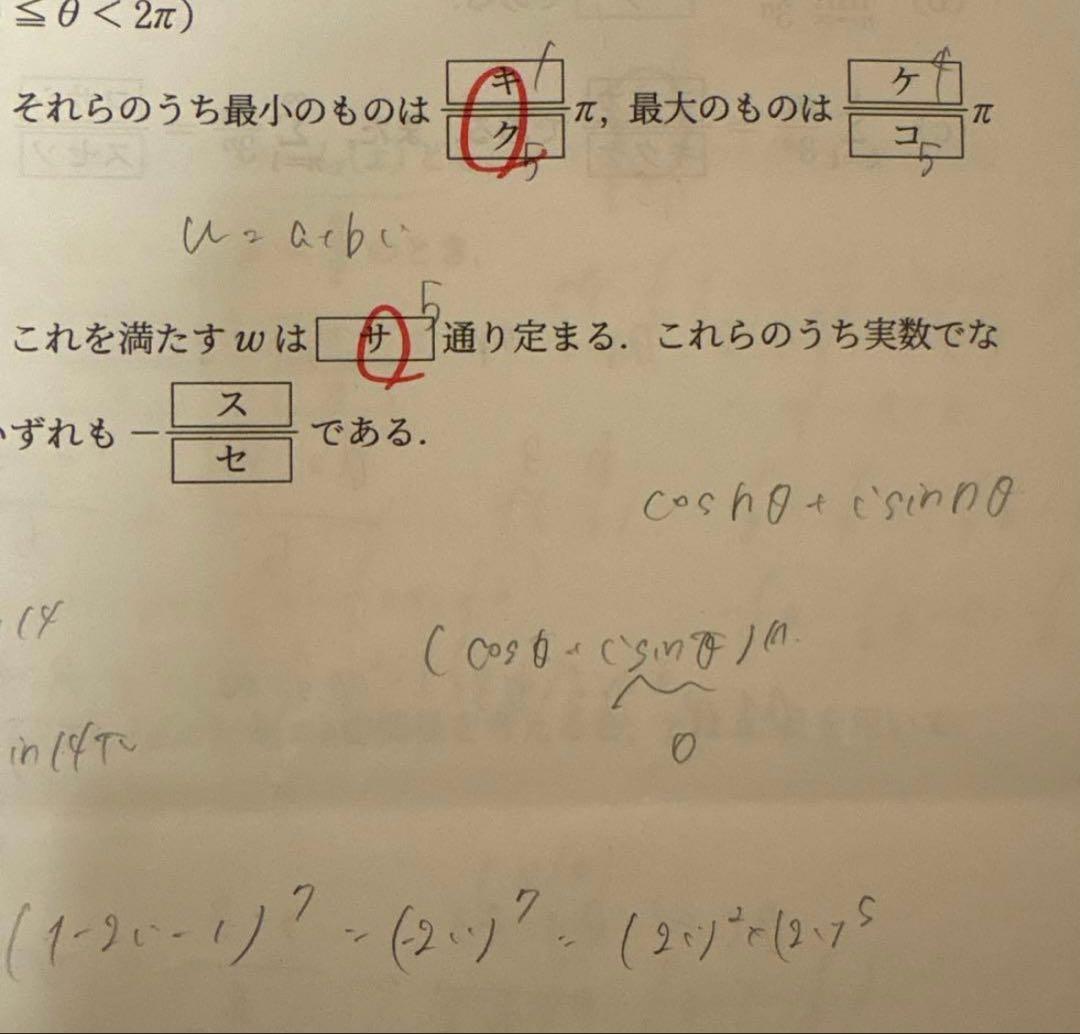 ≦ θ < 2π)
それらのうち最小のものは キ/ク π, 最大のものは ケ/コ π
1 5 4 5
u = a+bi
これを満たす w は サ 通り定まる. これらのうち実数でな
5
いずれも − ス/セ である.
cos nθ + i sin nθ
14
(cosθ + i sinθ)
in 14π
0
(1-2i-1)^7 = (-2i)^7 = (2i)^2 × (2i)^5